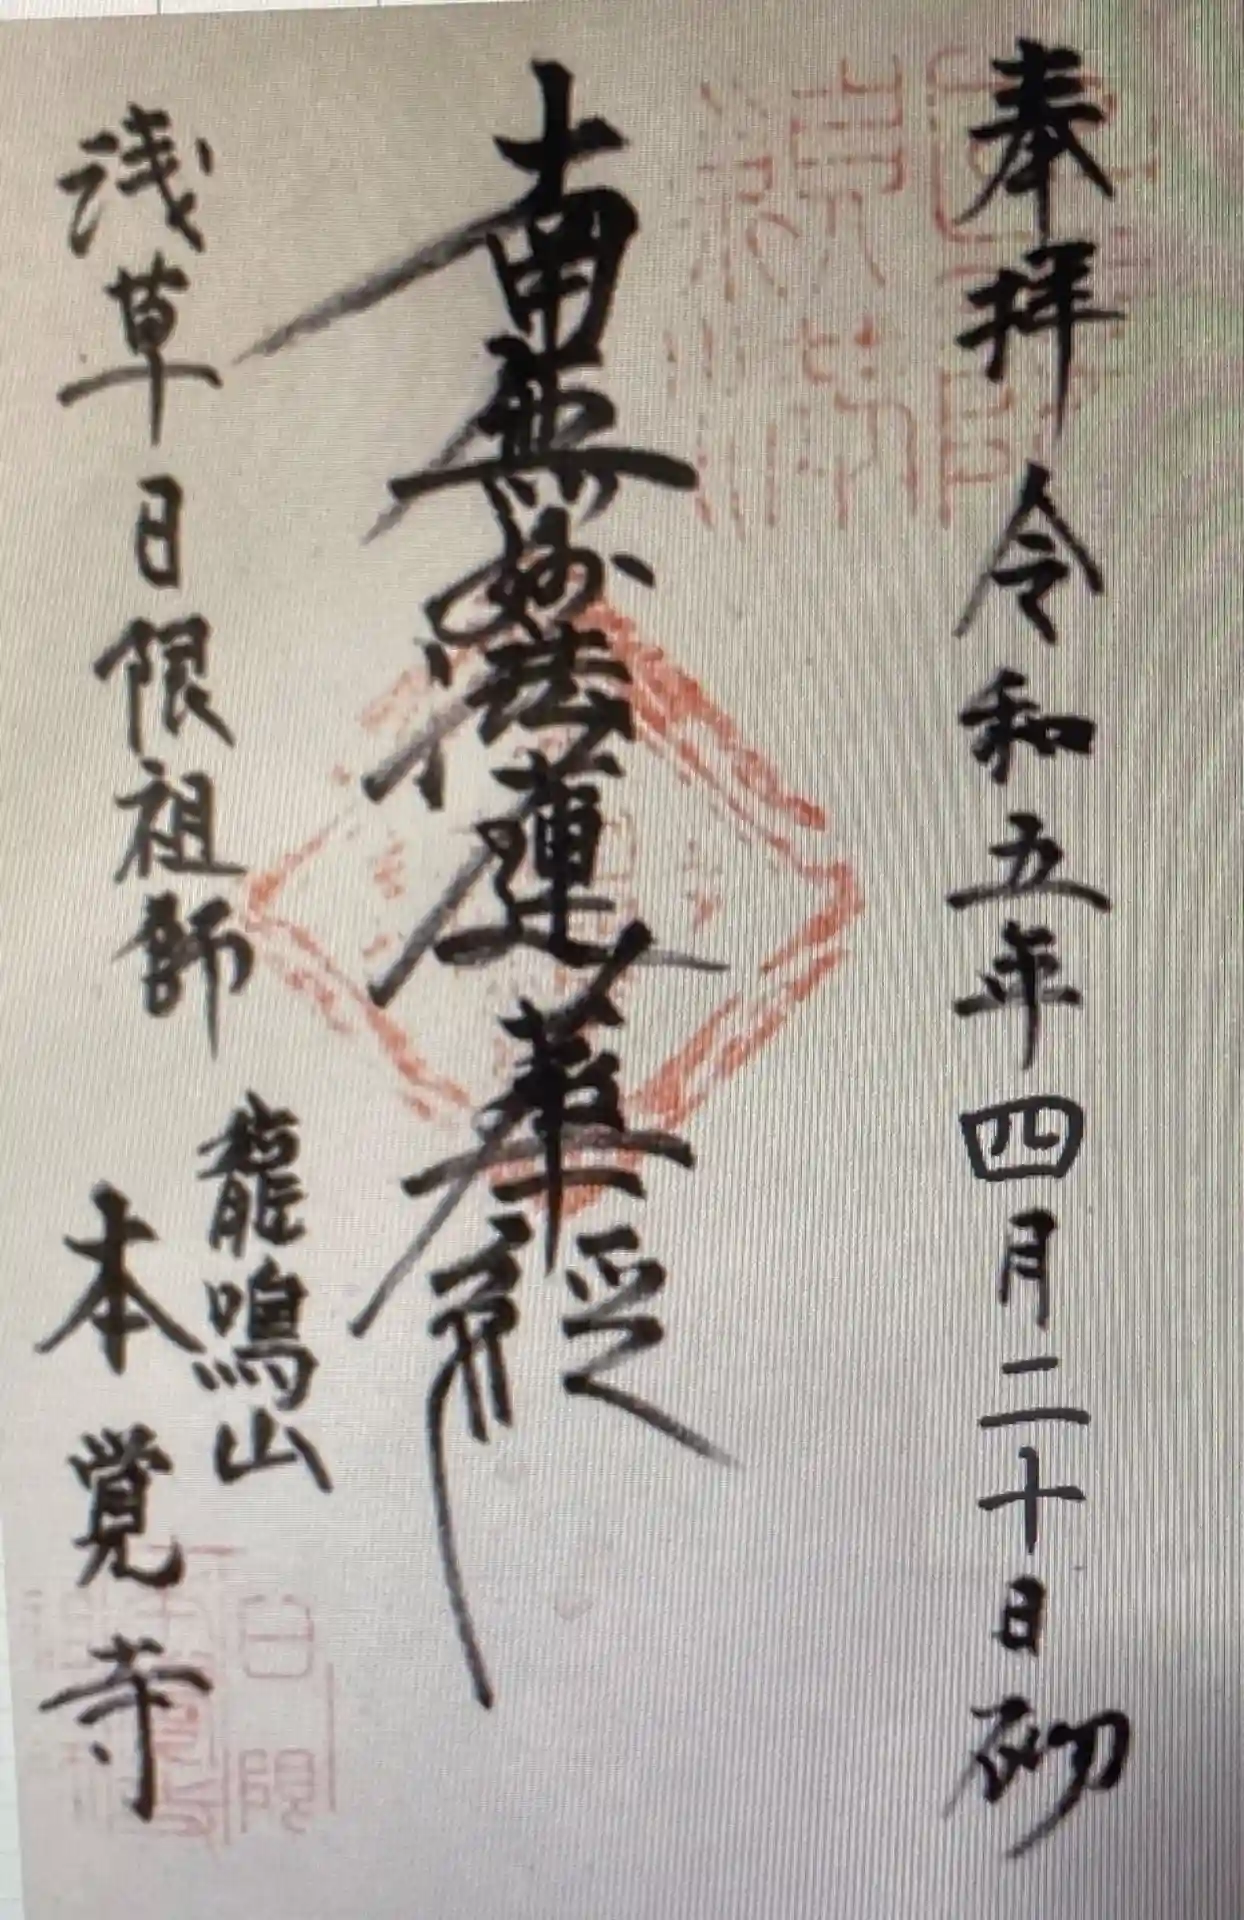 奉拝 令和五年四月二十日 砌
南無妙法蓮華経
浅草 日限祖師
龍鳴山
本覚寺
日限